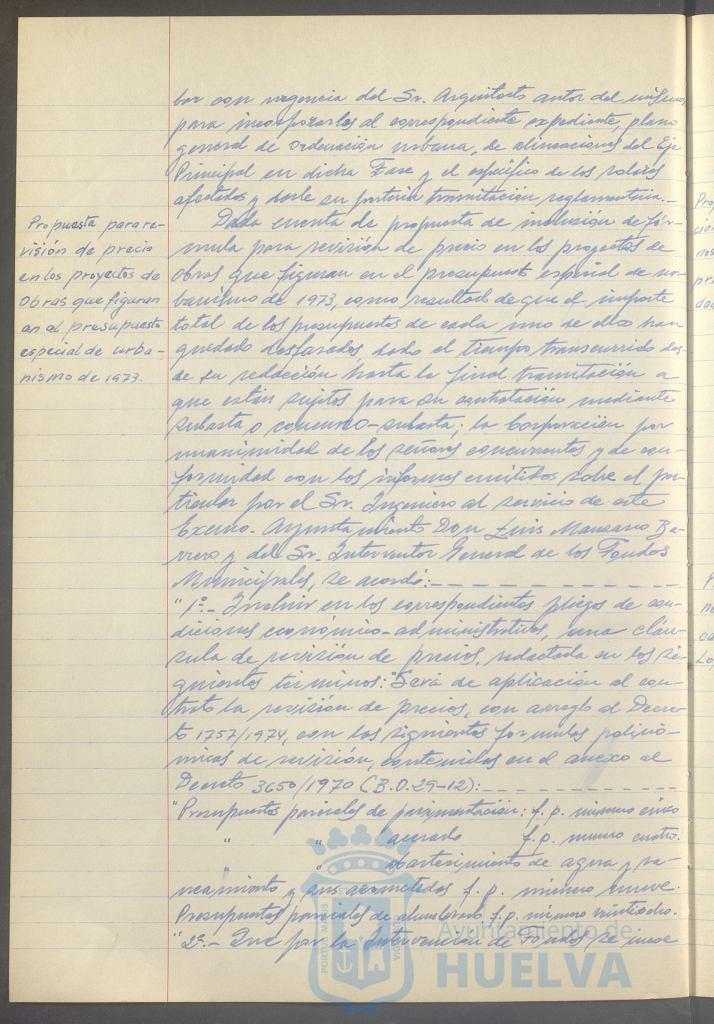 bor con urgencia del Sr. Arquitecto autor del mismo,
para incorporarlos al correspondiente expediente, plano
general de ordenación urbana, de alineaciones del Eje
Principal en dicha Fase y el específico de los solares
afectados y darle su posterior tramitación reglamentaria.-
Propuesta para re-
visión de precio
en los proyectos de
Obras que figuran
en el presupuesto
especial de urba-
nismo de 1973.
Dada cuenta de propuesta de inclusión de fór-
mula para revisión de precio en los proyectos de
Obras que figuran en el presupuesto especial de ur-
banismo de 1973, como resultado de que el importe
total de los presupuestos de cada uno de ellos han
quedado desfasados dado el tiempo transcurrido des-
de su redacción hasta la final tramitación a
que están sujetos para su contratación mediante
subasta o concurso-subasta; la Corporación por
unanimidad de los señores concurrentes y de con-
formidad con los informes emitidos sobre el par-
ticular por el Sr. Ingeniero al servicio de este
Excmo. Ayuntamiento Don Luis Manzano Ba-
rrero y del Sr. Interventor General de los Fondos
Municipales, se acordó:- - - - - - - - - - - -
"1º.- Incluir en los correspondientes pliegos de con-
diciones económico-administrativas, una cláu-
sula de revisión de precios, redactada en los si-
guientes términos: "Será de aplicación al con-
trato la revisión de precios, con arreglo al Decre-
to 1757/1974, con las siguientes fórmulas polinó-
micas de revisión, contenidas en el anexo al
Decreto 3650/1970 (B.O.29-12):- - - - - - - - -
"Presupuestos parciales de pavimentación: f.p. número cinco
" " acerado f.p. número cuatro.
" " abastecimiento de agua y sa-
neamiento y sus acometidas f.p. número nueve.
Presupuestos parciales de alumbrado, f.p. número
"2º.- Que por la Intervención de Fondos se
Ayuntamiento de
HUELVA